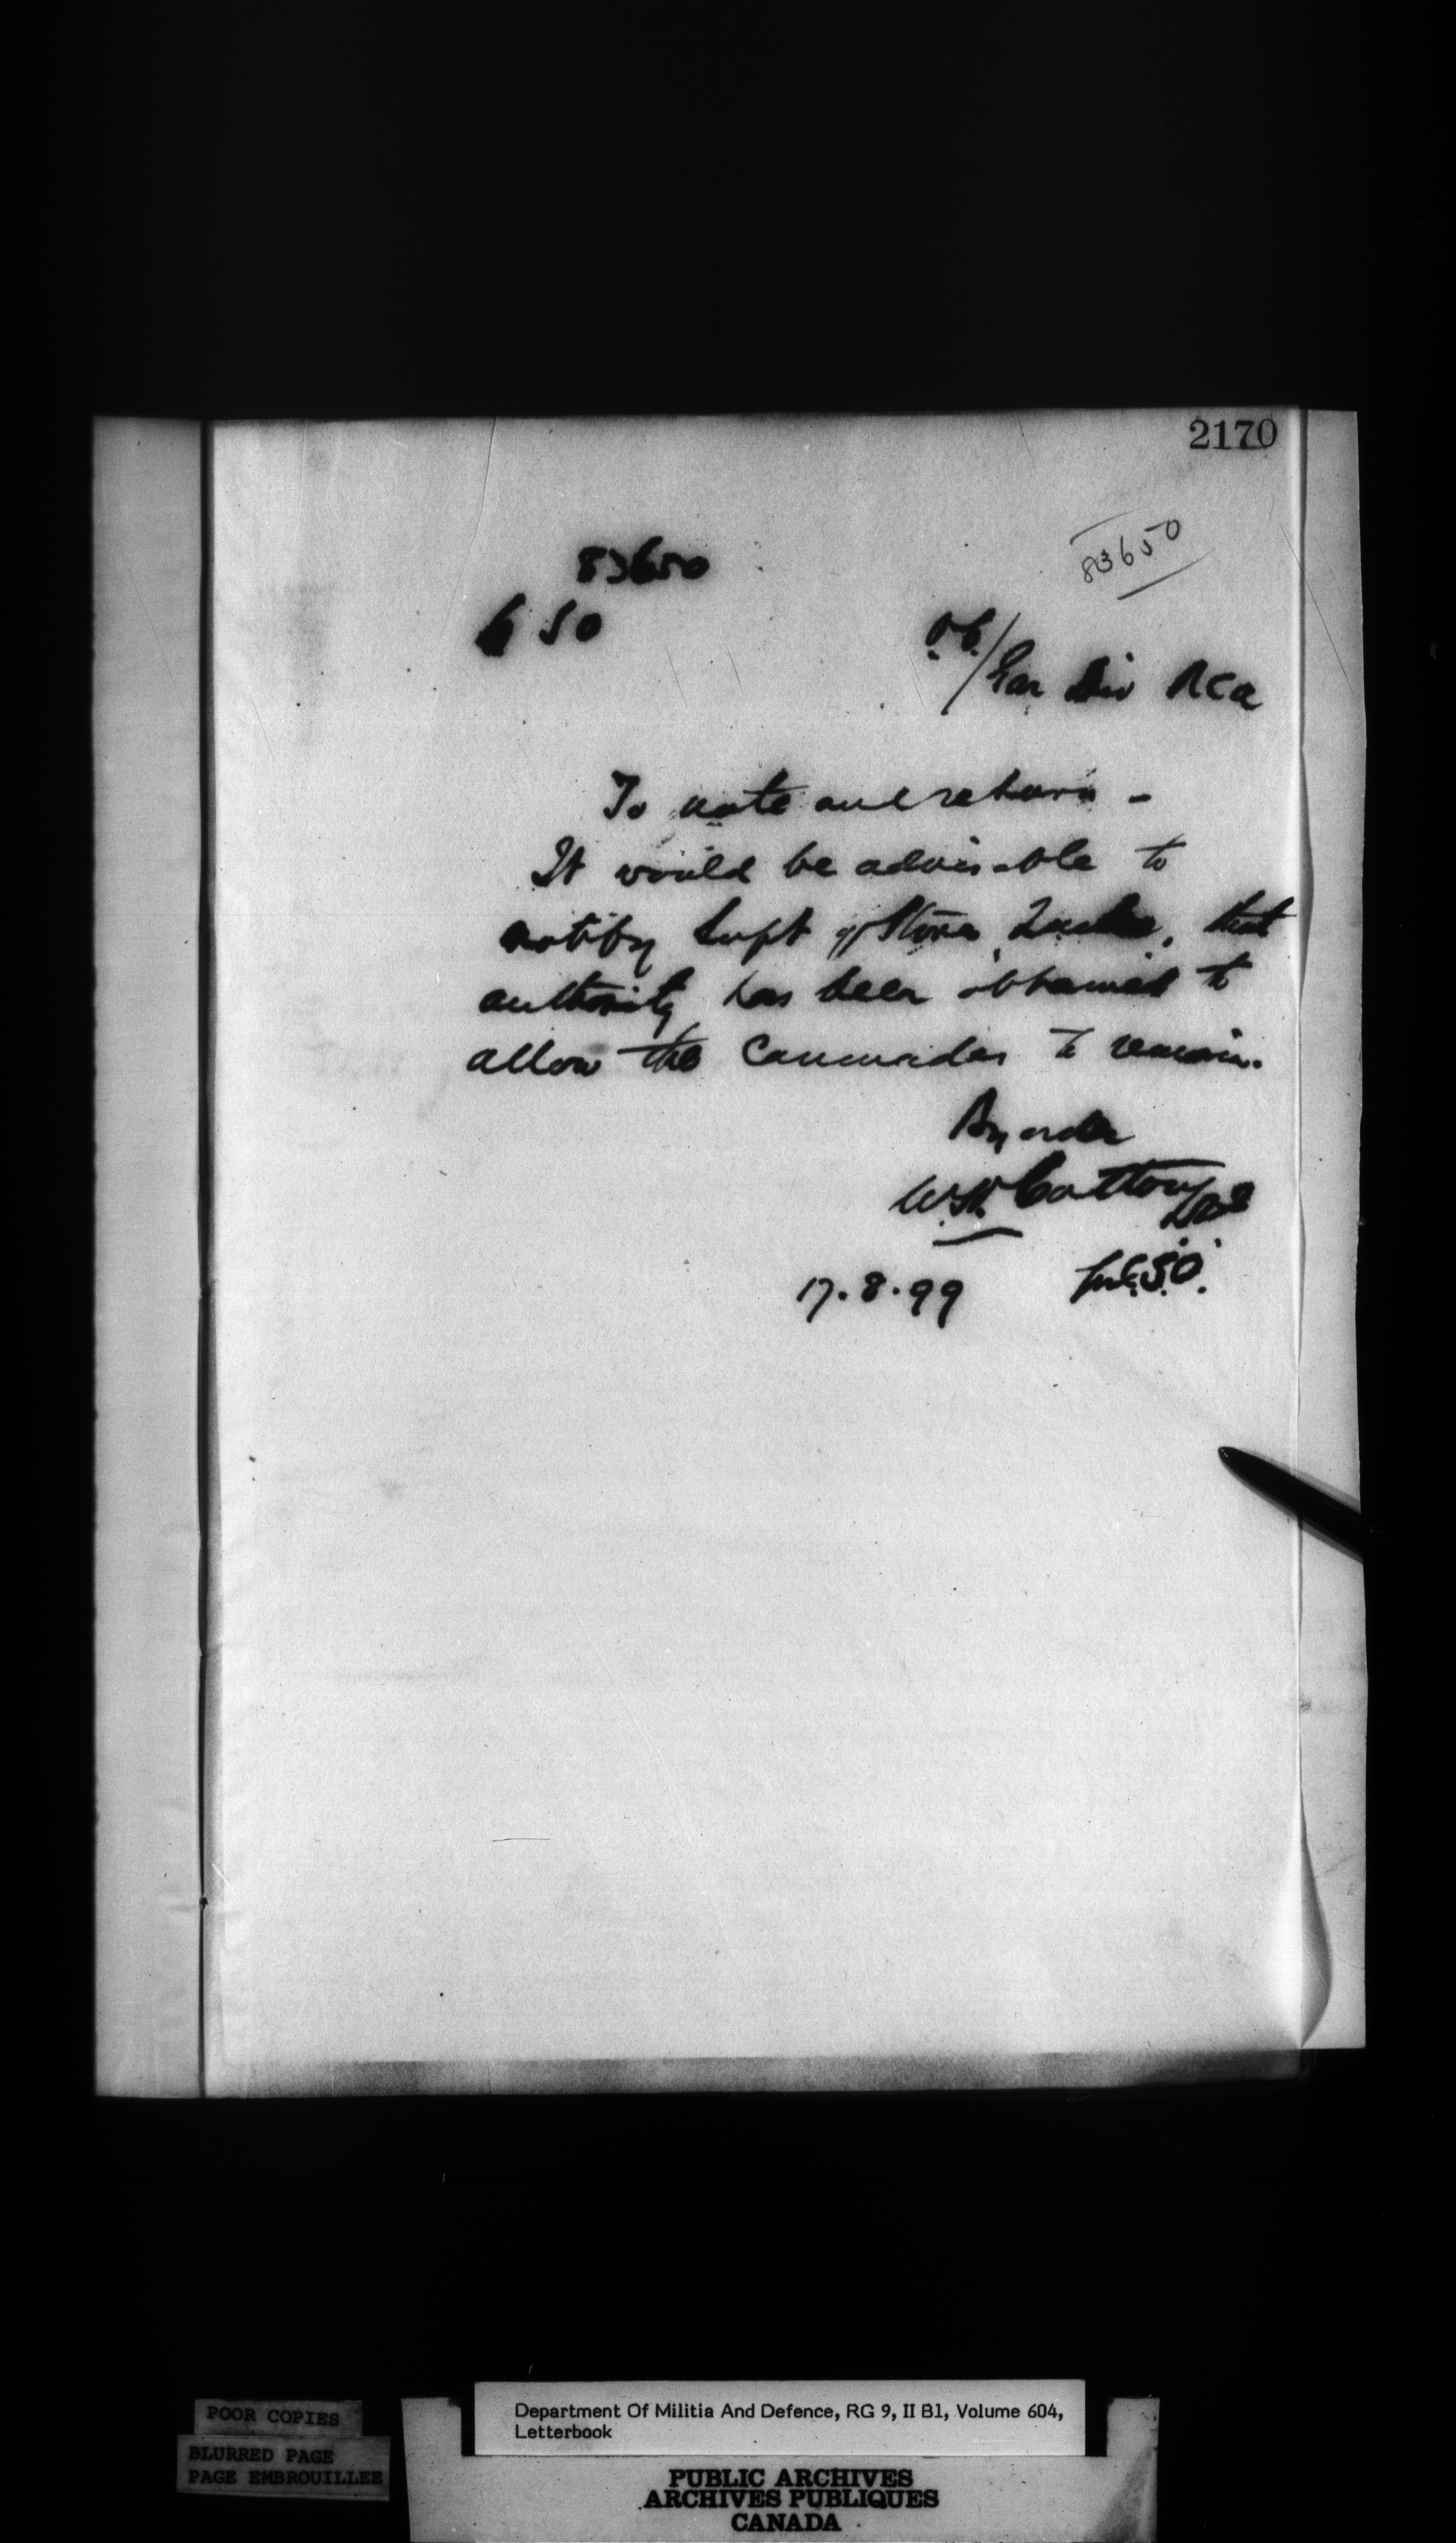 2170
83650
83650
G S O
O.C./
Gar Div RCA
To note and return -
It would be advisable to
notify Supt of Stores Quebec, that
authority has been obtained to
allow the to remain.
By order
W.H. Cotton
17.8.99
C.S.O.
POOR COPIES
BLURRED PAGE
PAGE EMBROUILLEE
Department Of Militia And Defence, RG 9, II B1, Volume 604,
Letterbook
PUBLIC ARCHIVES
ARCHIVES PUBLIQUES
CANADA